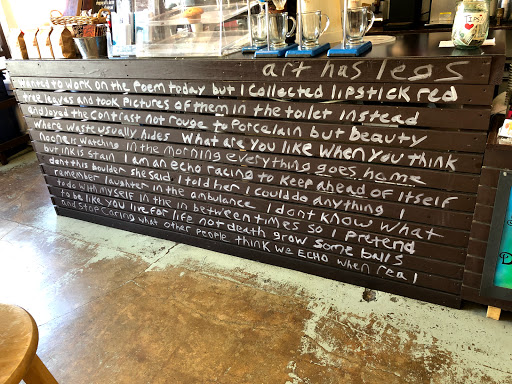 art has legs
wanted to work on the poem today but I collected lipstick red
tree leaves and took pictures of them in the toilet instead
and loved the contrast not rouge to porcelain but beauty
where waste usually hides What are you like when you think
no one is watching in the morning everything goes home
but ink is stain I am an echo racing to keep ahead of itself
dont be boulder she said I told her I could do anything I
remember laughter in the ambulance I dont know what
to do with myself in the in between times so I pretend
to be like you live for life not death grow some balls
and stop caring what other people think we ECHO when real
TIPS